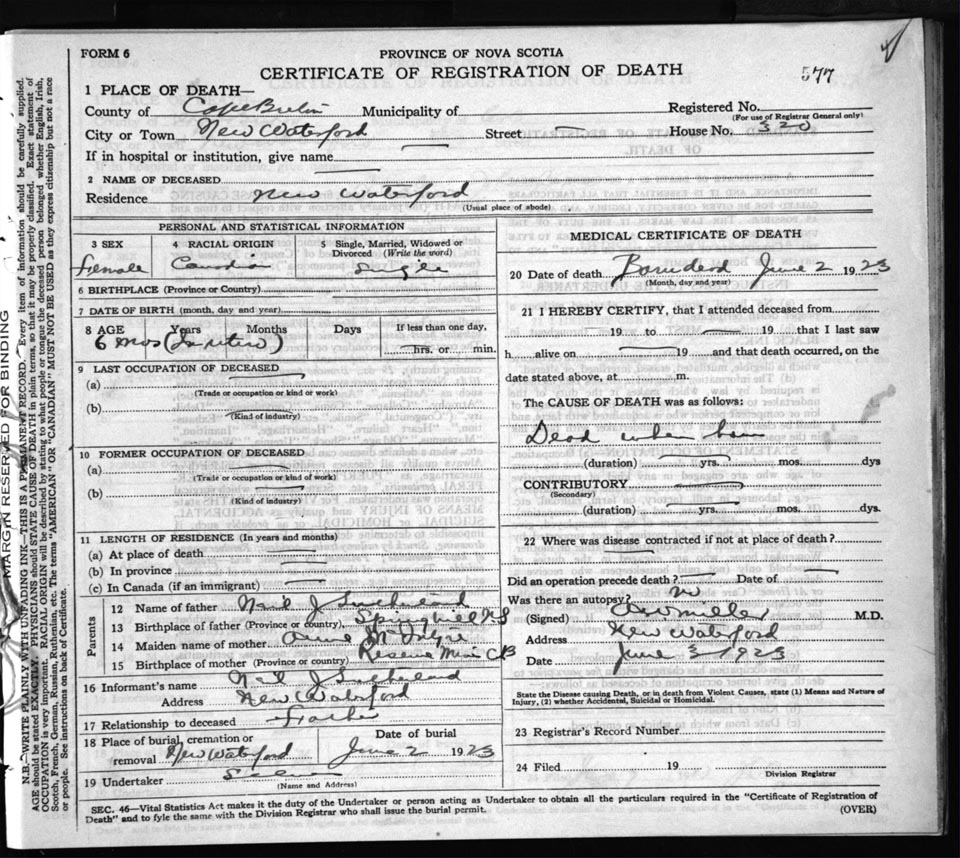 FORM 6
PROVINCE OF NOVA SCOTIA
CERTIFICATE OF REGISTRATION OF DEATH
577
1 PLACE OF DEATH—
County of Cape Breton Municipality of
Registered No.
(For use of Registrar General only)
City or Town New Waterford Street House No. 320
If in hospital or institution, give name
2 NAME OF DECEASED
Residence New Waterford
(Usual place of abode)
PERSONAL AND STATISTICAL INFORMATION
3 SEX 4 RACIAL ORIGIN 5 Single, Married, Widowed or Divorced (Write the word)
Female Canadian Single
6 BIRTHPLACE (Province or Country)
7 DATE OF BIRTH (month, day and year)
8 AGE Years Months Days If less than one day,
6 mos (In utero) hrs. or min.
9 LAST OCCUPATION OF DECEASED
(a)
(Trade or occupation or kind or work)
(b)
(Kind of industry)
10 FORMER OCCUPATION OF DECEASED
(a)
(Trade or occupation or kind or work)
(b)
(Kind of industry)
11 LENGTH OF RESIDENCE (In years and months)
(a) At place of death
(b) In province
(c) In Canada (if an immigrant)
Parents
12 Name of father Neil J Sutherland
13 Birthplace of father (Province or country) Springhill NS
14 Maiden name of mother Annie McIntyre
15 Birthplace of mother (Province or country) Reserve Mines CB
16 Informant's name Neil J Sutherland
Address New Waterford
17 Relationship to deceased Father
18 Place of burial, cremation or removal New Waterford
Date of burial June 2 1923
19 Undertaker
(Name and Address)
MEDICAL CERTIFICATE OF DEATH
20 Date of death Born dead June 2 1923
(Month, day and year)
21 I HEREBY CERTIFY, that I attended deceased from
19 to 19 that I last saw
h alive on 19 and that death occurred, on the
date stated above, at m.
The CAUSE OF DEATH was as follows:
Dead when born
(duration) yrs. mos. dys
CONTRIBUTORY
(Secondary)
(duration) yrs. mos. dys.
22 Where was disease contracted if not at place of death?
Did an operation precede death? Date of
Was there an autopsy? no
(Signed) M.D.
Address New Waterford
Date June 3 1923
State the Disease causing Death, or in death from Violent Causes, state (1) Means and Nature of
Injury, (2) whether Accidental, Suicidal or Homicidal.
23 Registrar's Record Number
24 Filed 19
Division Registrar
SEC. 46—Vital Statistics Act makes it the duty of the Undertaker or person acting as Undertaker to obtain all the particulars required in the "Certificate of Registration of
Death" and to fyle the same with the Division Registrar who shall issue the burial permit.
(OVER)
MARGIN RESERVED FOR BINDING
N.B.—WRITE PLAINLY WITH UNFADING INK—THIS IS A PERMANENT RECORD. Every item of information should be carefully supplied.
AGE should be stated EXACTLY. PHYSICIANS should STATE CAUSE OF DEATH in plain terms, so that it may be properly classified. Exact statement of
OCCUPATION is very important. RACIAL ORIGIN will be described by stating to what people or tongue the deceased person belonged whether English, Irish,
Scotch, French, German, Russian, Ruthenian, etc. The terms "AMERICAN" OR "CANADIAN" MUST NOT BE USED as they express citizenship but not a race
or people. See instructions on back of Certificate.